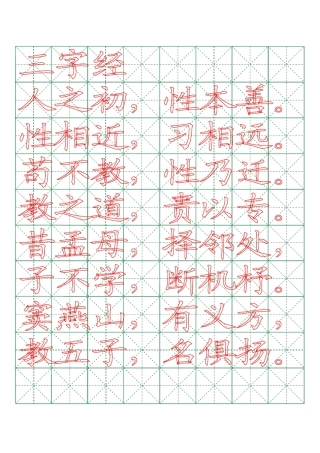 三字经
人之初，性本善。
性相近，习相远。
苟不教，性乃迁。
教之道，贵以专。
昔孟母，择邻处，
子不学，断机杼。
窦燕山，有义方，
教五子，名俱扬。